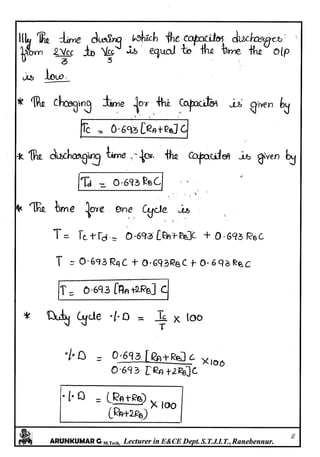 Illy The time during which the capacitor discharges
from 2Vcc/3 to Vcc/3 is equal to the time the O/P
is low.
* The charging time for the capacitor is given by
Tc = 0.693 [RA+RB] C
* The discharging time, for the capacitor is given by
Td = 0.693 RB C
* The time fore one cycle is
T = Tc + Td = 0.693 [RA+RB]C + 0.693 RB C
T = 0.693 RA C + 0.693 RB C + 0.693 RB C
T = 0.693 [RA+2RB] C
* Duty Cycle %D = Tc/T x 100
%D = 0.693 [RA+RB] C / 0.693 [RA+2RB] C x100
%D = (RA+RB) / (RA+2RB) x 100
ARUNKUMAR G M.Tech, Lecturer in E&CE Dept. S.T.J.I.T., Ranebennur.